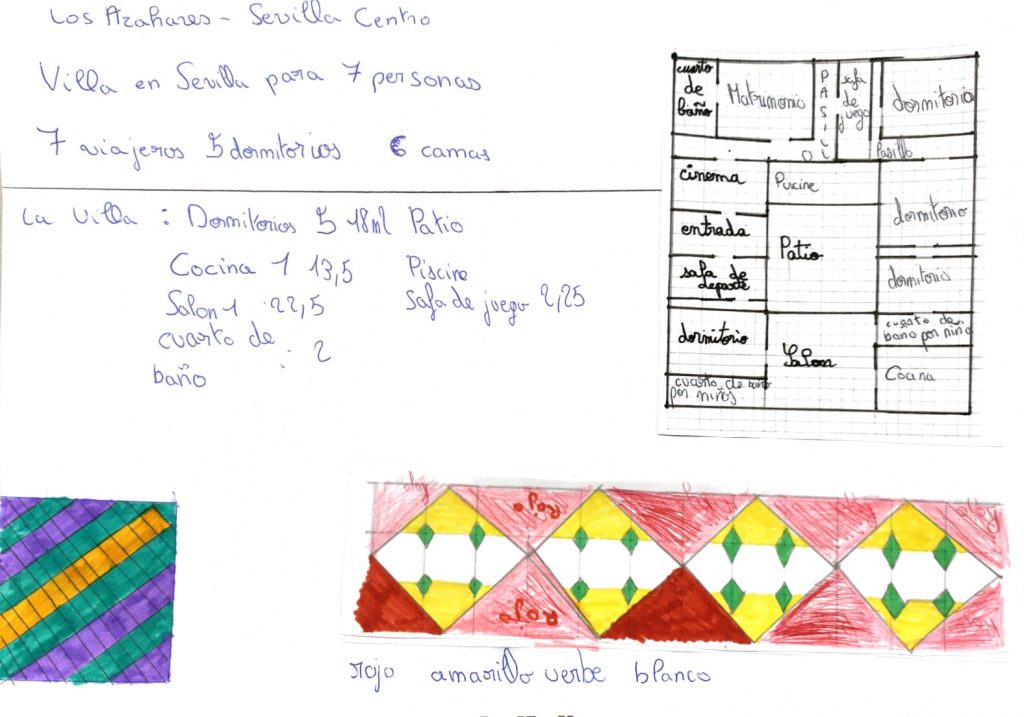 Los Azahares - Sevilla Centro
Villa en Sevilla para 7 personas
7 viajeros 5 dormitorios 6 camas
La Villa : Dormitorios 5 18ml Patio
Cocina 1 13,5 Piscine
Salon 1 22,5 Safa de juego 2,25
cuarto de
baño : 2
cuarto
de
baño
Matrimonio
PASILLO
safa
de
juego
dormitorio
Pasillo
cinema
Piscine
dormitorio
entrada
Patio
safa de
departe
dormitorio
dormitorio
Salon
cuarto de
bano por niño
Cocina
cuarto de baño
por niños
rojo
Rojo
rojo
rojo
rojo amarillo verbe blanco